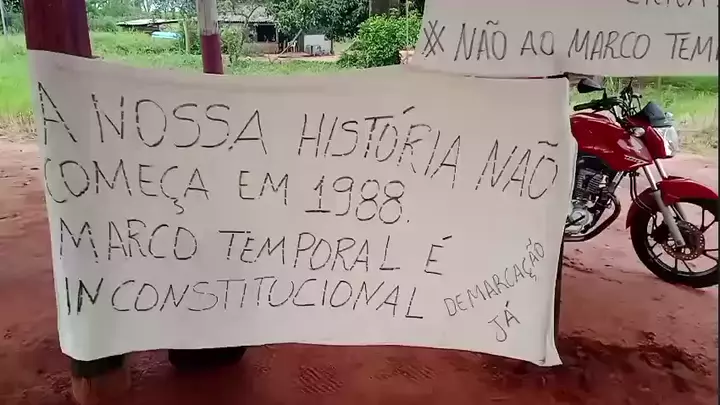 ※ NÃO AO MARCO TEM
A NOSSA HISTÓRIA NÃO
COMEÇA EM 1988.
MARCO TEMPORAL É
INCONSTITUCIONAL
DEMARCAÇÃO
JÁ